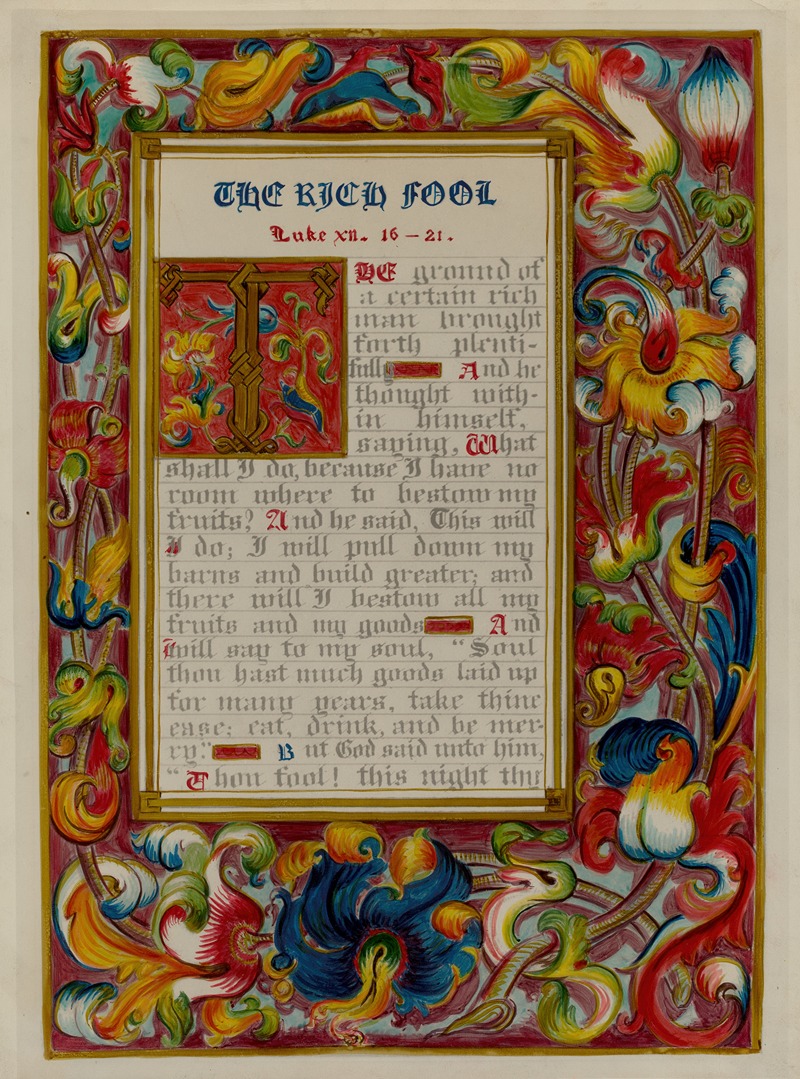 THE RICH FOOL
Luke XII. 16 — 21.
THE ground of
a certain rich
man brought
forth plenti-
fully And he
thought with-
in himself,
saying, What
shall I do, because I have no
room where to bestow my
fruits? And he said, This will
I do; I will pull down my
barns and build greater; and
there will I bestow all my
fruits and my goods And
I will say to my soul, “Soul
thou hast much goods laid up
for many years, take thine
ease; eat, drink, and be mer-
ry.” But God said unto him,
“Thou fool! this night thy